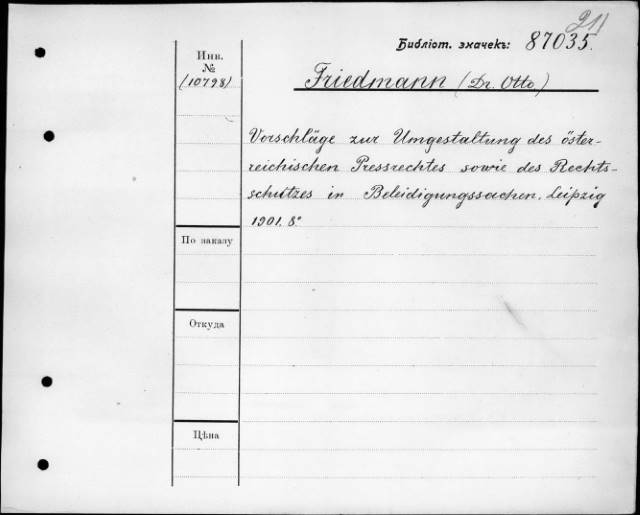 211
Библіот. значекъ: 87035.
Инв.
№
(10798)
Friedmann (Dr. Otto)
Vorschläge zur Umgestaltung des öster-
reichischen Pressrechtes sowie des Rechts-
schutzes in Beleidigungssachen. Leipzig
1901. 8°
По заказу
Откуда
Цѣна